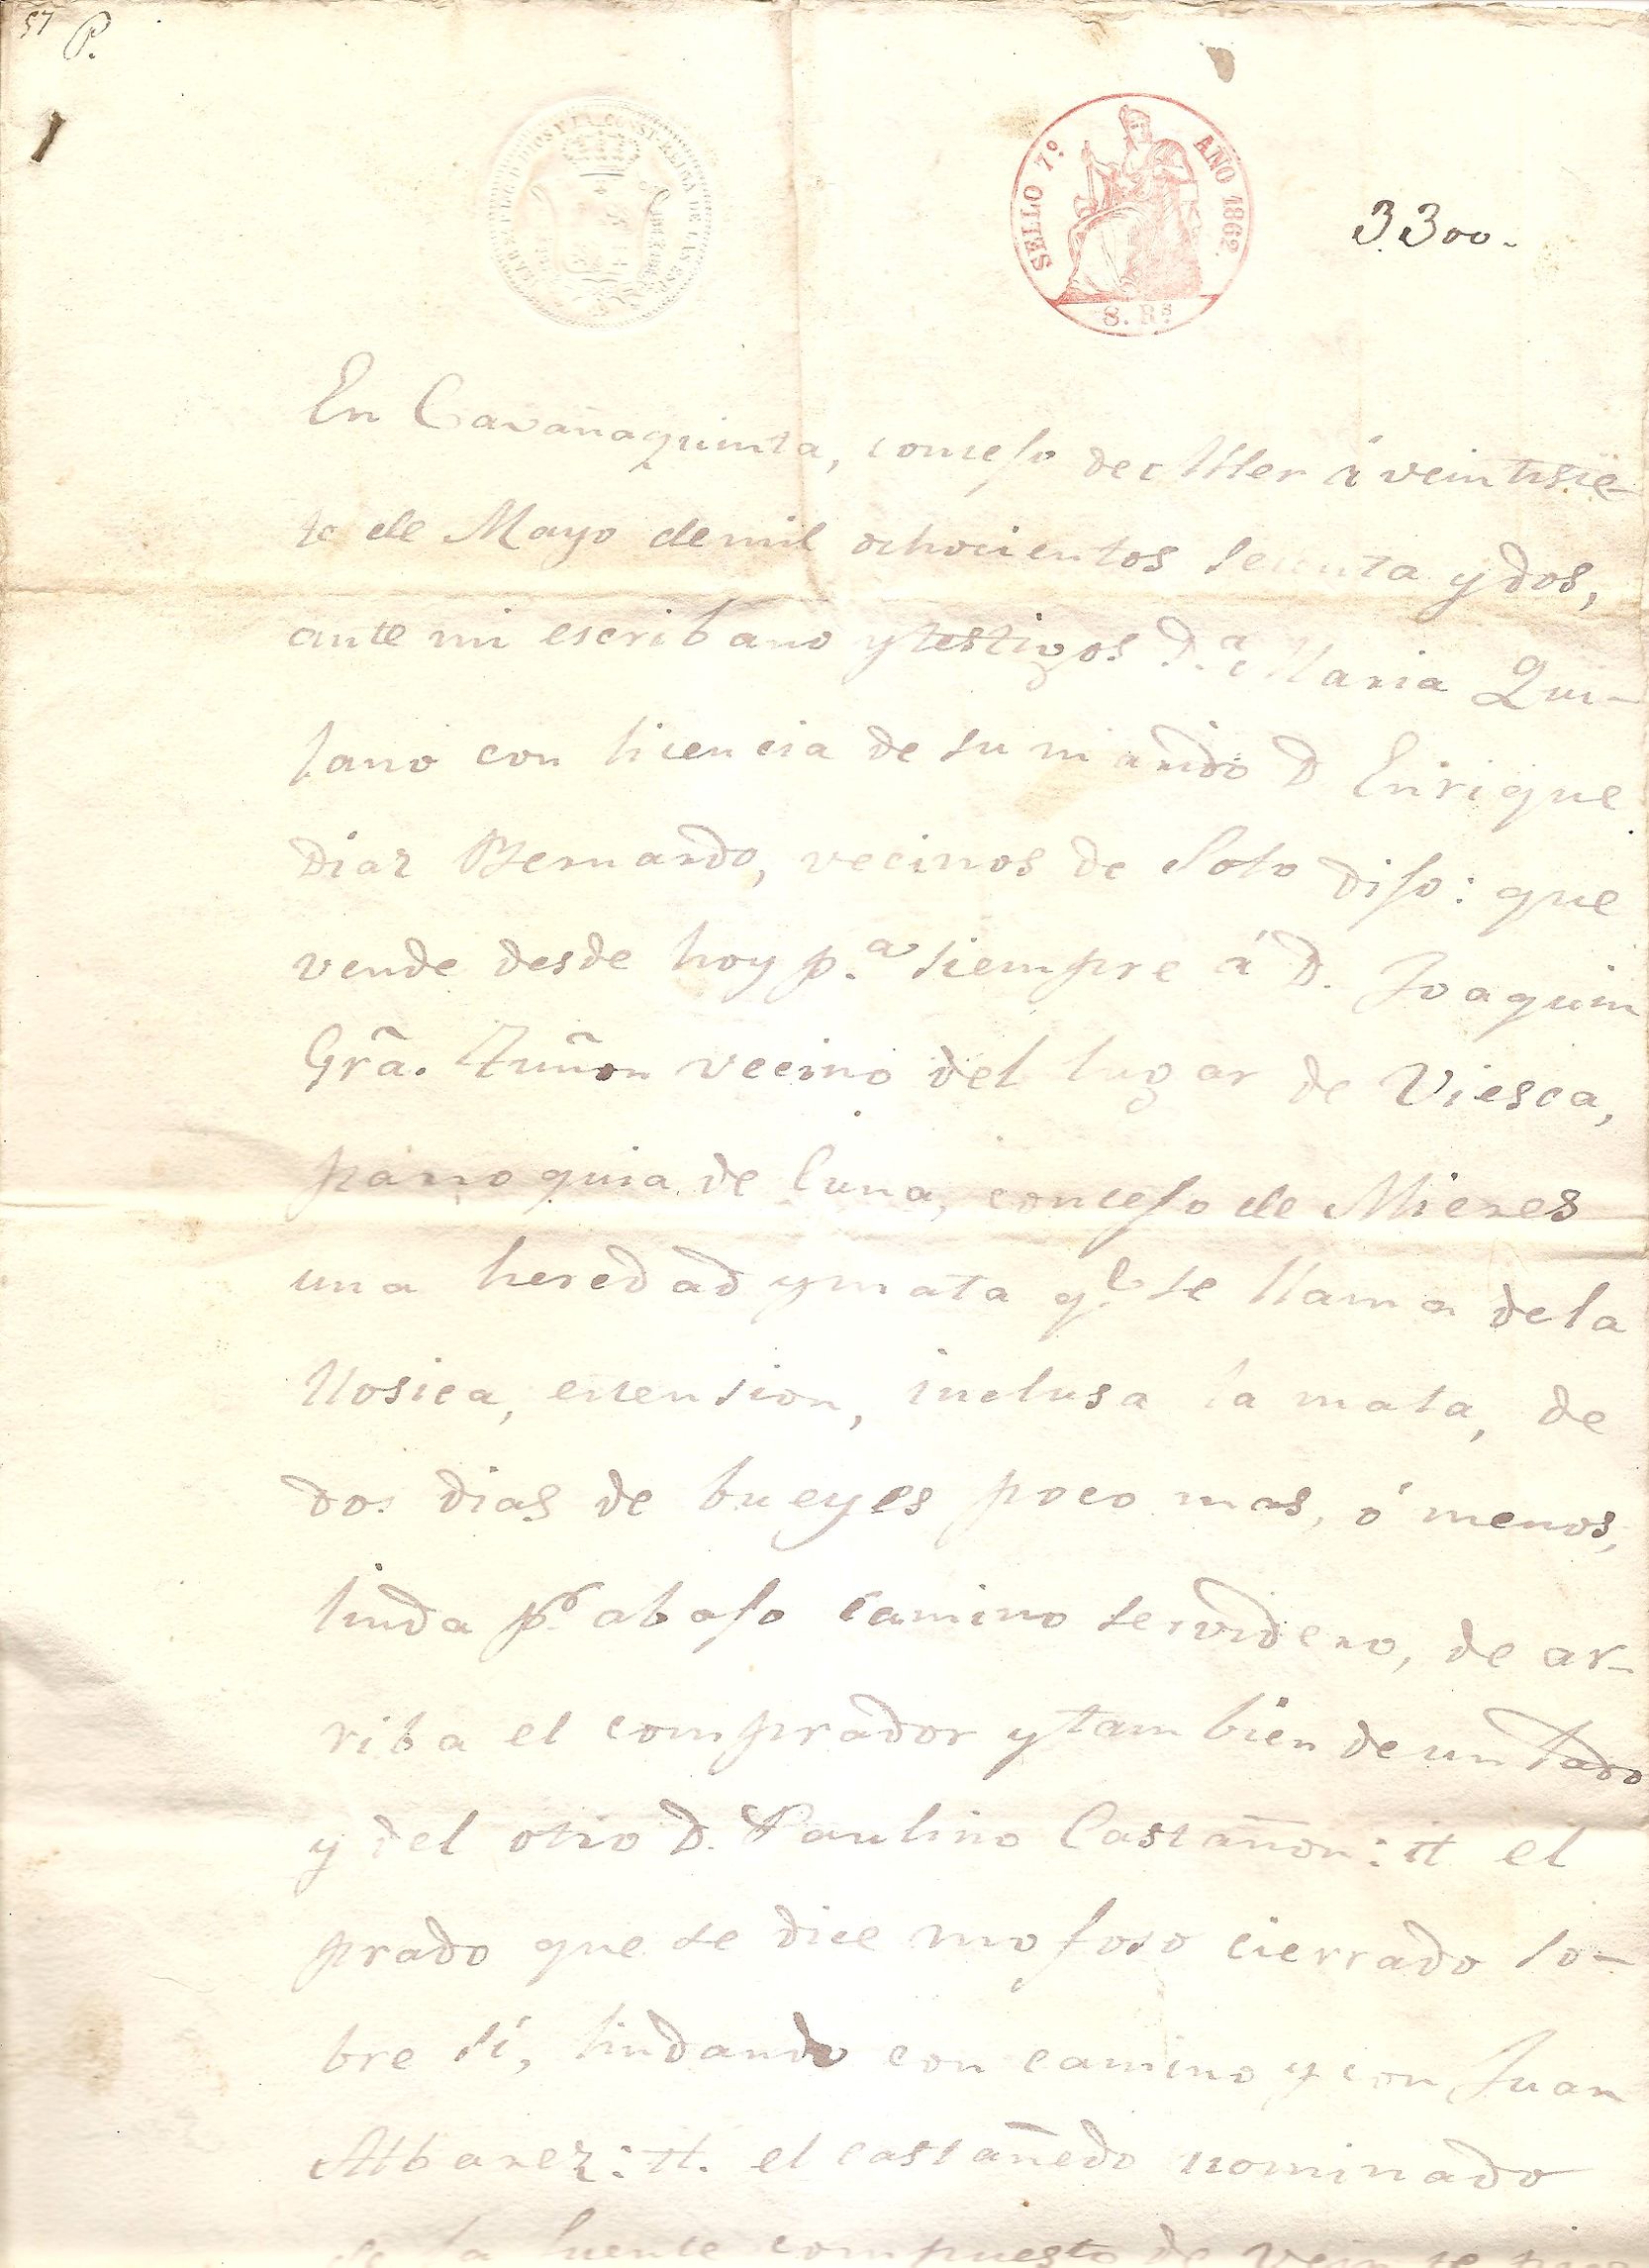 57 P.
SELLO 7º AÑO 1862.
8. Rs
3.300.
En Cavañaquinta, concejo de Aller á veintisie-
te de Mayo de mil ochocientos sesenta y dos,
ante mi escribano y testigos D.ª Maria Qui-
jano con licencia de su marido D Enrique
Diaz Bernardo, vecinos de Soto dijo: que
vende desde hoy p.ª siempre á D. Joaquin
Grã. Zuñon vecino del lugar de Viesca,
parroquia de Cuna, concejo de Mieres
una heredad y mata q.e se llama de la
Llosica, estension, inclusa la mata, de
dos dias de bueyes poco mas, ó menos,
linda p.r abajo camino servidero, de ar-
riba el comprador y tambien de un lado
y del otro D. Paulino Castañon: It el
prado que se dice mojoso cierrado so-
bre sí, lindando con camino y con Juan
Albarez: It. el castañedo nominado
de la fuente compuesto de